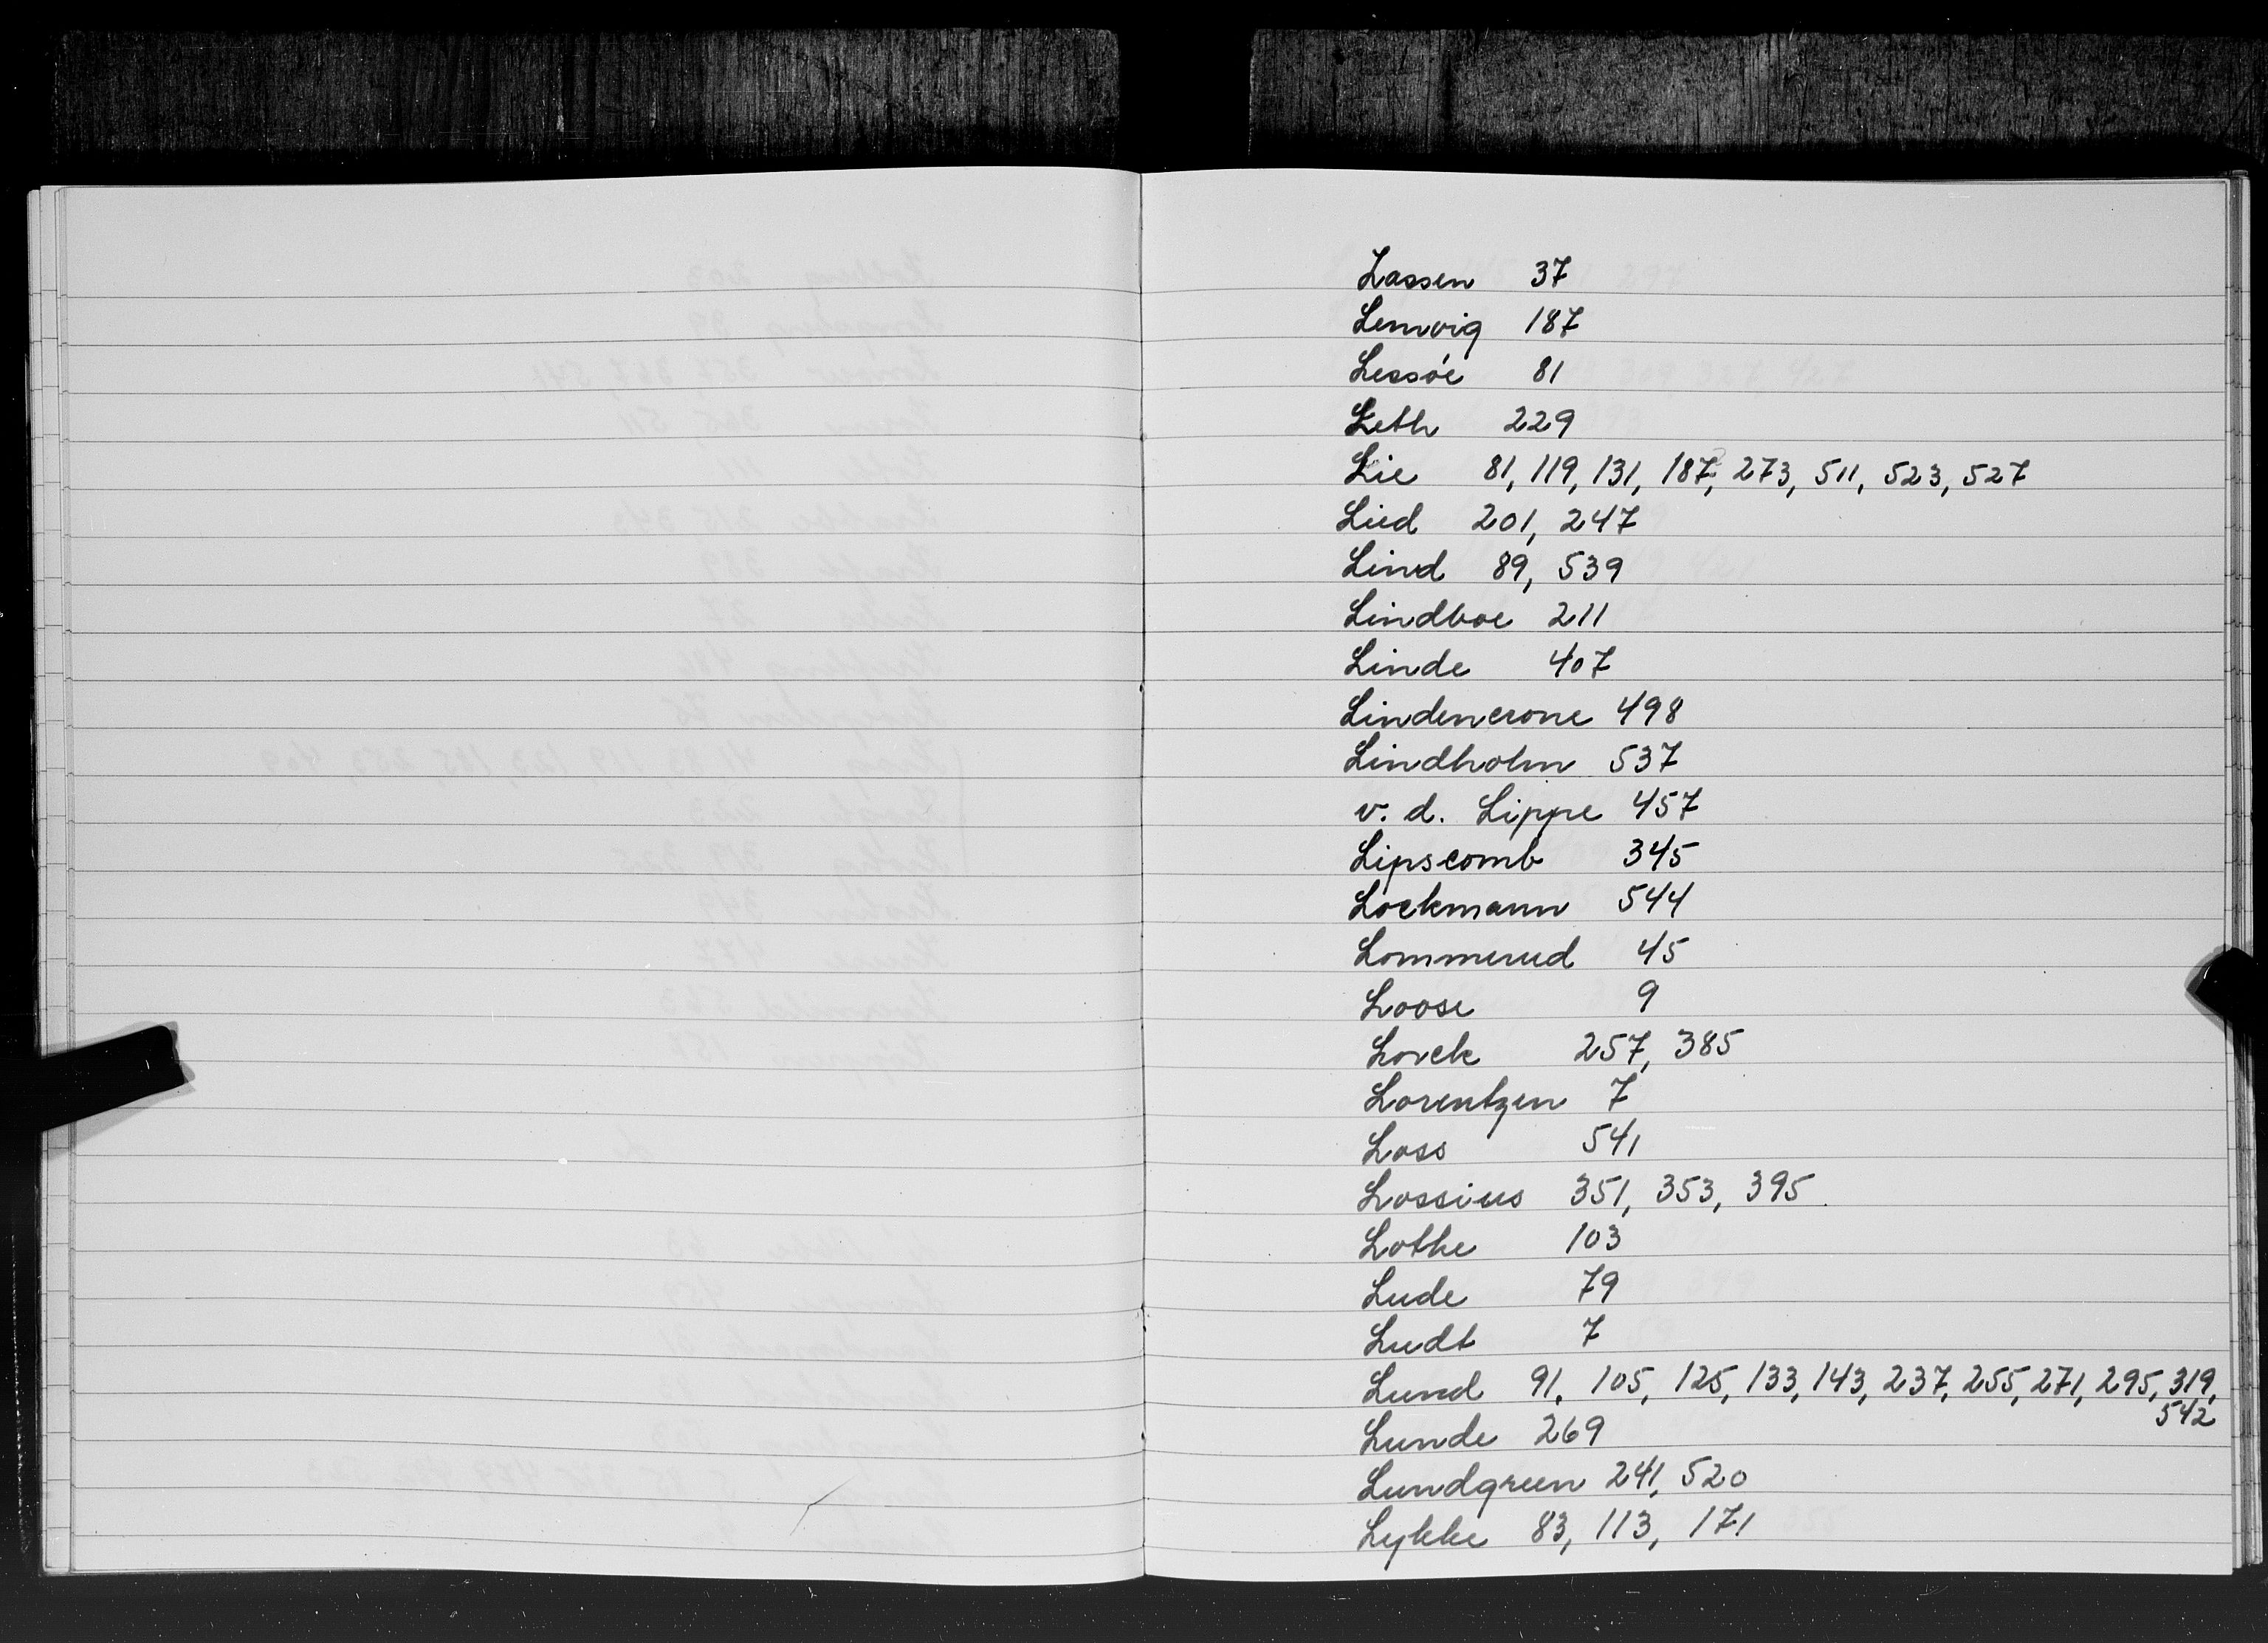 Lassen 37
Lemvig 187
Lessøe 81
Leth 229
Lie 81, 119, 131, 187, 273, 511, 523, 527
Lied 201, 247
Lind 89, 539
Lindboe 211
Linde 407
Lindencrone 498
Lindholm 537
v. d. Lippe 457
Lipscomb 345
Lockmann 544
Lommerud 45
Loose 9
Lorck 257, 385
Lorentzen 7
Loss 541
Lossius 351, 353, 395
Lothe 103
Lude 79
Ludt 7
Lund 91, 105, 125, 133, 143, 237, 255, 271, 295, 319,
542
Lunde 269
Lundgreen 241, 520
Lykke 83, 113, 171